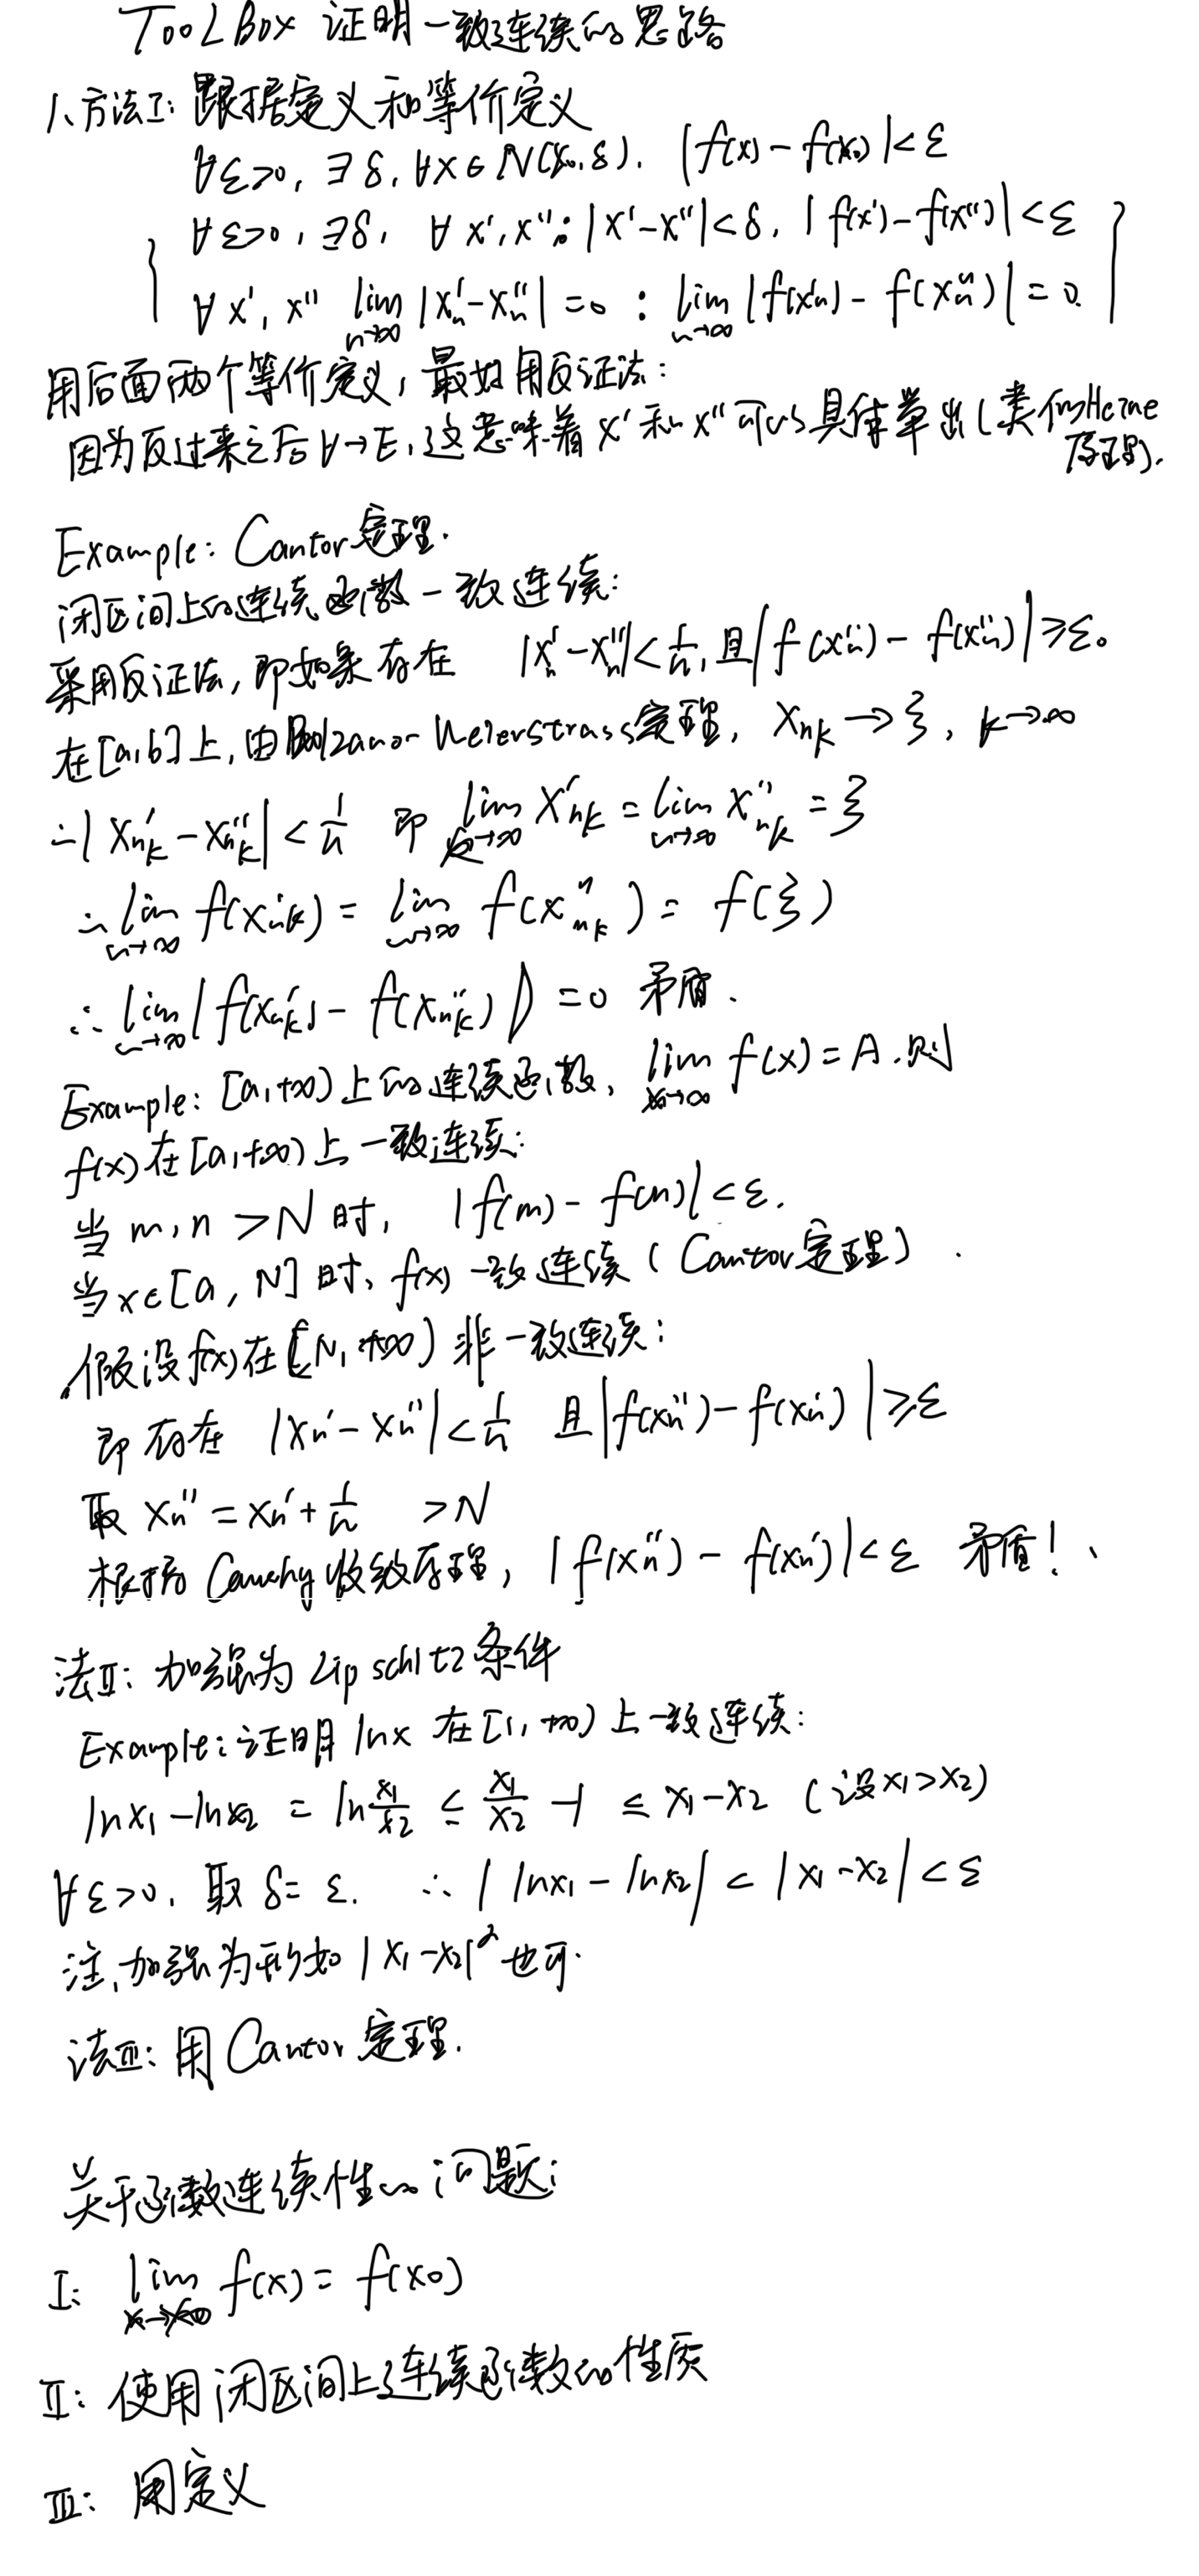 TOOLBOX 证明一致连续的思路
1、方法I: 跟据定义和等价定义
∀ε>0, ∃δ, ∀x∈N(x₀,δ), |f(x)-f(x₀)|<ε
∀ε>0, ∃δ, ∀x',x'': |x'-x''|<δ, |f(x')-f(x'')|<ε
∀x', x'' lim n→∞ |xₙ'-xₙ''|=0 : lim n→∞ |f(xₙ')-f(xₙ'')|=0
用后面两个等价定义, 最好用反证法:
因为反过来之后∀→∃, 这意味着x'和x''可以具体举出(类似Heine
原理).
Example: Cantor定理.
闭区间上的连续函数一致连续:
采用反证法, 即如果存在 |xₙ'-xₙ''|<1/n, 且|f(xₙ'')-f(xₙ'')|≥ε₀
在[a,b]上, 由Bolzano-Weierstrass定理, xₙₖ→ξ, k→∞
∴|xₙₖ'-xₙₖ''|<1/n 即 lim k→∞ xₙₖ' = lim n→∞ xₙₖ'' = ξ
∴ lim n→∞ f(xₙₖ') = lim n→∞ f(xₙₖ'') = f(ξ)
∴ lim n→∞ |f(xₙₖ')-f(xₙₖ'')|=0 矛盾.
Example: [a,+∞)上的连续函数, lim x→∞ f(x)=A.则
f(x)在[a,+∞)上一致连续:
当m,n>N时, |f(m)-f(n)|<ε.
当x∈[a,N]时, f(x)一致连续(Cantor定理).
假设f(x)在[N,+∞)非一致连续:
即存在 |xₙ'-xₙ''|<1/n 且|f(xₙ'')-f(xₙ')|≥ε
取 xₙ''=xₙ'+1/n >N
根据Cauchy收敛原理, |f(xₙ'')-f(xₙ')|<ε 矛盾!
法II: 加强为Lipschitz条件
Example: 证明lnx在[1,+∞)上一致连续:
lnx₁-lnx₂ = ln x₁/x₂ ≤ x₁/x₂ -1 ≤ x₁-x₂ (设x₁>x₂)
∀ε>0, 取δ=ε. ∴|lnx₁-lnx₂|<|x₁-x₂|<ε
注,加强为形如|x₁-x₂|^α也可.
法III: 用Cantor定理.
关于函数连续性的问题:
I: lim x→x₀ f(x)=f(x₀)
II: 使用闭区间上连续函数的性质
III: 用定义